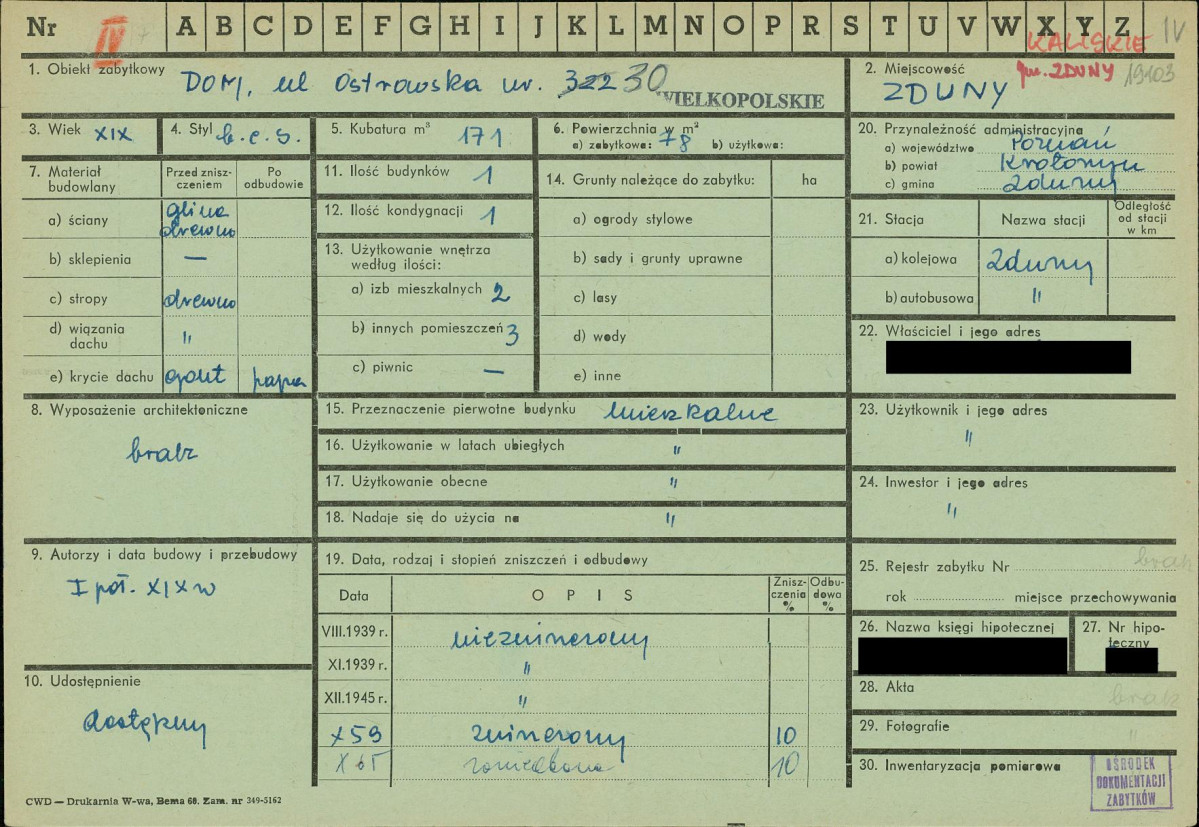 Nr IV A B C D E F G H I J K L M N O P R S T U V W X Y Z IV
KALISKIE
1. Obiekt zabytkowy DOM, ul Ostrowska nr. 322 30
WIELKOPOLSKIE
2. Miejscowość gm. ZDUNY 19103
ZDUNY
3. Wiek XIX
4. Styl b.c.s.
5. Kubatura m³ 171
6. Powierzchnia w m²
a) zabytkowa: 78 b) użytkowa:
7. Materiał budowlany
Przed znisz-
czeniem
Po
odbudowie
a) ściany glina drewno
b) sklepienia —
c) stropy drewno
d) wiązania dachu "
e) krycie dachu gont papa
8. Wyposażenie architektoniczne
brak
9. Autorzy i data budowy i przebudowy
I poł. XIX w
10. Udostępnienie
dostępny
11. Ilość budynków 1
12. Ilość kondygnacji 1
13. Użytkowanie wnętrza
według ilości:
a) izb mieszkalnych 2
b) innych pomieszczeń 3
c) piwnic —
14. Grunty należące do zabytku: ha
a) ogrody stylowe
b) sady i grunty uprawne
c) lasy
d) wody
e) inne
15. Przeznaczenie pierwotne budynku mieszkalne
16. Użytkowanie w latach ubiegłych "
17. Użytkowanie obecne "
18. Nadaje się do użycia na "
19. Data, rodzaj i stopień zniszczeń i odbudowy
Data OPIS
Znisz-
czenia
%
Odbu-
dowa
%
VIII.1939 r. niezniszczony
XI.1939 r. "
XII.1945 r. "
X 59 zniszczony 10
X 65 zaniedbana 10
20. Przynależność administracyjna
a) województwo Poznań
b) powiat Krotoszyn
c) gmina Zduny
21. Stacja Nazwa stacji
Odległość
od stacji
w km
a) kolejowa Zduny
b) autobusowa "
22. Właściciel i jego adres
23. Użytkownik i jego adres
"
24. Inwestor i jego adres
"
25. Rejestr zabytku Nr brak
rok miejsce przechowywania
26. Nazwa księgi hipotecznej
27. Nr hipo-
teczny
28. Akta brak
29. Fotografie "
30. Inwentaryzacja pomiarowa
OŚRODEK
DOKUMENTACJI
ZABYTKÓW
CWD — Drukarnia W-wa, Bema 60. Zam. nr 349-5162